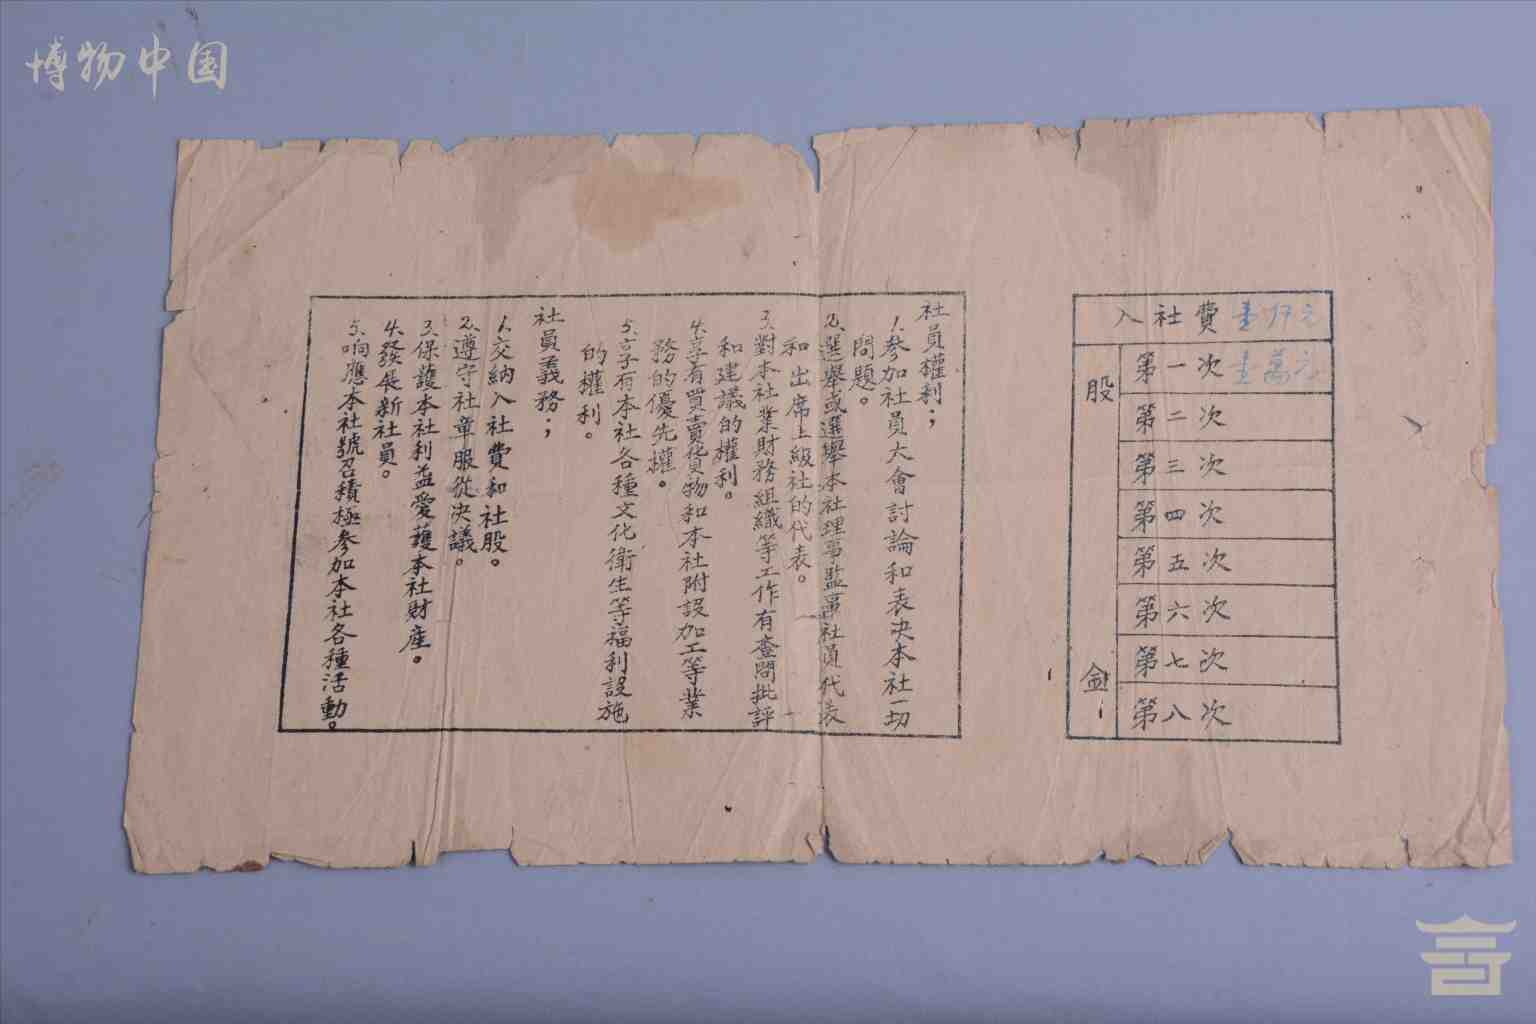 博物中国
入社費 壹仟元
股金
第一次 壹萬元
第二次
第三次
第四次
第五次
第六次
第七次
第八次
社員權利；
1.參加社員大會討論和表决本社一切
問題。
2.選舉或選舉本社理事監事社員代表
和出席上級社的代表。
3.對本社業財務組織等工作有查問批評
和建議的權利。
4.享有買賣貨物和本社附設加工等業
務的優先權。
5.享有本社各種文化衛生等福利設施
的權利。
社員義務；
1.交納入社費和社股。
2.遵守社章服從决議。
3.保護本社利益愛護本社財產。
4.發展新社員。
5.响應本社號召積極參加本社各種活動。